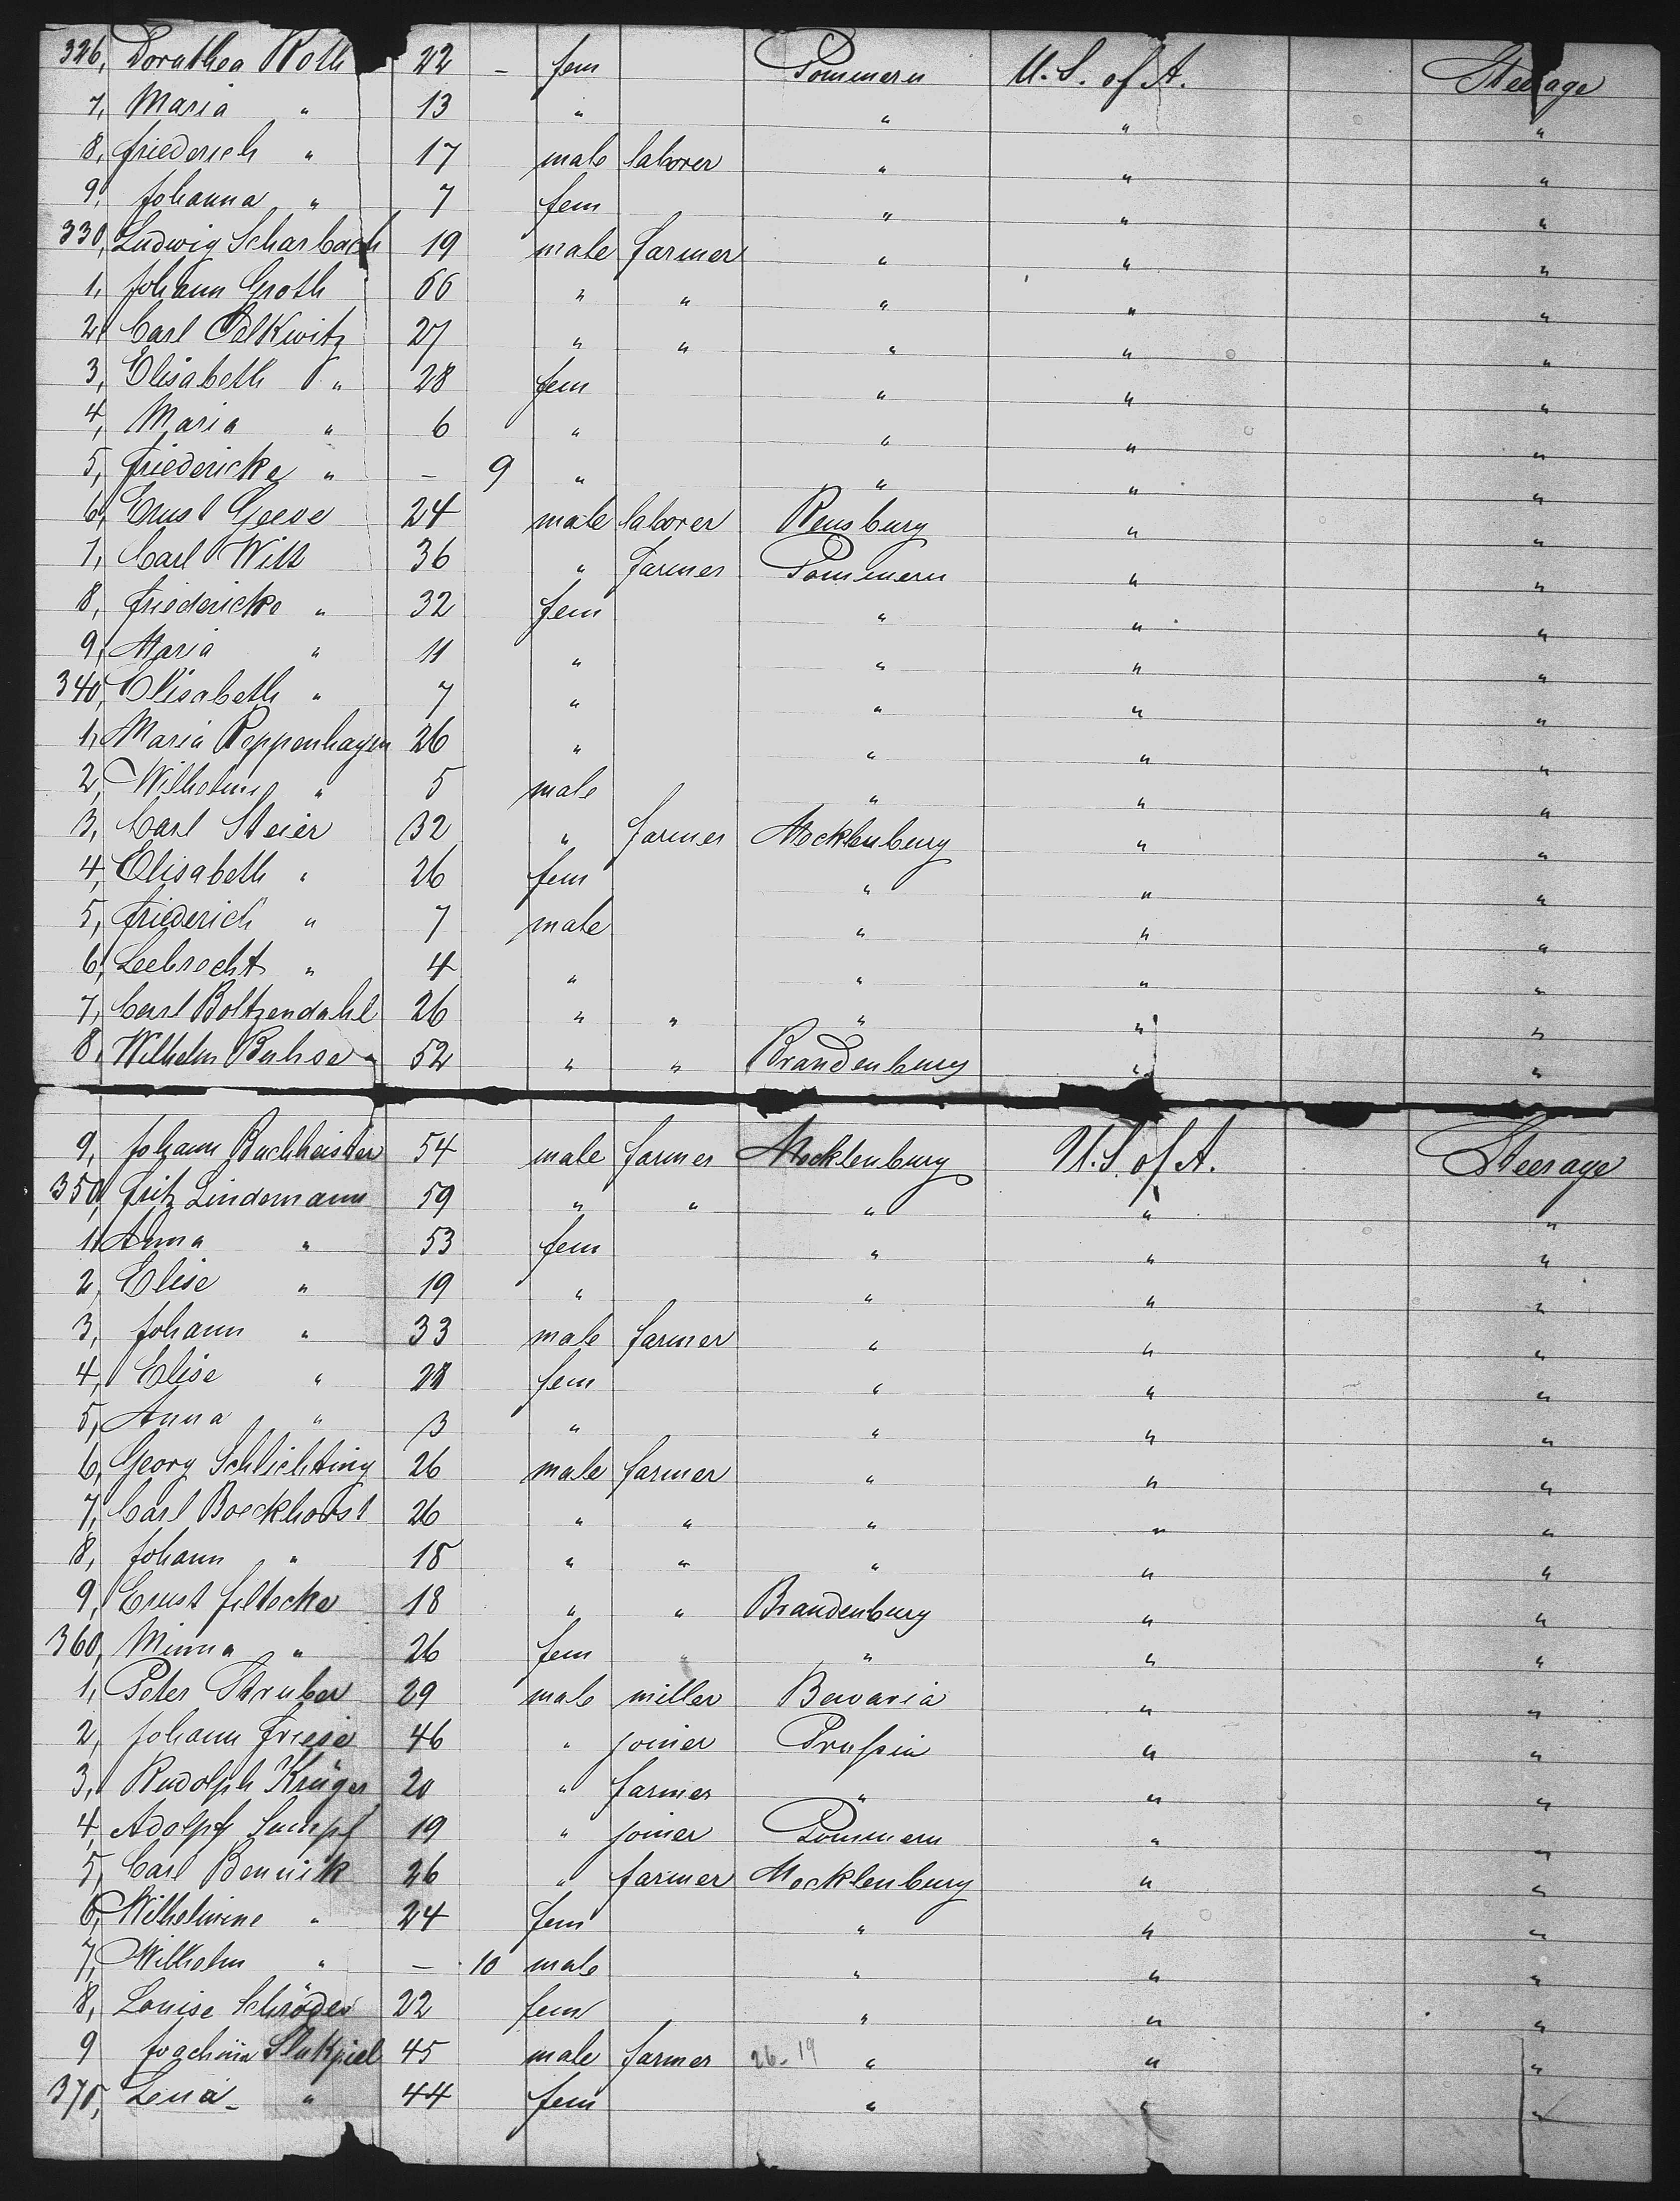 326, Dorothea Roth 22 - fem Pommern U. S. of A. Steerage
7, Maria " 13 " " " "
8, Friederich " 17 male laborer " " "
9, Johanna " 7 fem " " "
330, Ludwig Scharbach 19 male farmer " " "
1, Johann Groth 66 " " " " "
2, Carl Pelkwitz 27 " " " " "
3, Elisabeth " 28 fem " " "
4, Maria " 6 " " " "
5, Friedericke " - 9 " " " "
6, Ernst Geeve 24 male laborer Rensburg " "
7, Carl Witt 36 " farmer Pommern " "
8, Friedericke " 32 fem " " "
9, Maria " 11 " " " "
340, Elisabeth " 7 " " " "
1, Maria Peppenhagen 26 " " " "
2, Wilhelm " 5 male " " "
3, Carl Steier 32 " farmer Mecklenburg " "
4, Elisabeth " 26 fem " " "
5, Friederich " 7 male " " "
6, Leebrecht " 4 " " " "
7, Carl Boltzendahl 26 " " " " "
8, Wilhelm Buhse 52 " " Brandenburg " "
9, Johann Buchheister 54 male farmer Mecklenburg U. S. of A. Steerage
350, Fritz Lindemann 59 " " " " "
1, Anna " 53 fem " " "
2, Elise " 19 " " " "
3, Johann " 33 male farmer " " "
4, Elise " 28 fem " " "
5, Anna " 3 " " " "
6, Georg Schlichting 26 male farmer " " "
7, Carl Boeckhorst 26 " " " " "
8, Johann " 18 " " " " "
9, Ernst 18 " " Brandenburg " "
360, Minna " 26 fem " " " "
1, Peter Struber 29 male miller Bavaria " "
2, Johann Friese 46 " joiner Prussia " "
3, Rudolph Krüger 20 " farmer " " "
4, Adolph 19 " joiner Pommern " "
5, Carl Bennick 26 " farmer Mecklenburg " "
6, Wilhelmine " 24 fem " " "
7, Wilhelm " - 10 male " " "
8, Louise Schröder 22 fem " " "
9 Joachim 45 male farmer 26-19 " " "
370, Lena " 44 fem " " "